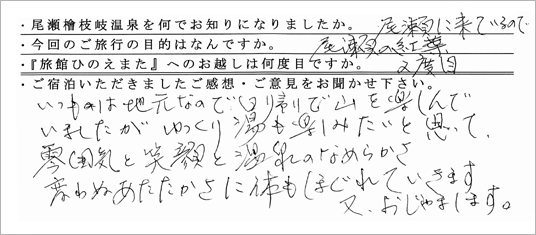 ・尾瀬檜枝岐温泉を何でお知りになりましたか。 尾瀬に来ているので
・今回のご旅行の目的はなんですか。 尾瀬の紅葉
・『旅館ひのえまた』へのお越しは何度目ですか。 2度目
・ご宿泊いただきましたご感想・ご意見をお聞かせ下さい。
いつもは地元なので日帰りで山を楽しんで
いましたが ゆっくり湯も楽しみたいと思って、
雰囲気と笑顔と温泉のなめらかさ
変わぬあたたかさに体もほぐれていきます
又、おじゃまします。